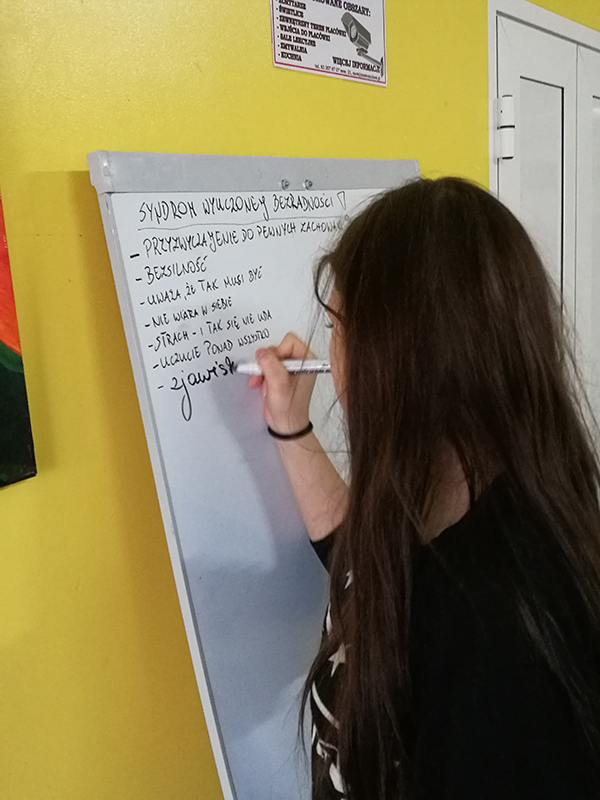 OWANE OBSZARY:
- KORYTARZE
- ŚWIETLICE
- ZEWNĘTRZNY TEREN PLACÓWKI
- WEJŚCIA DO PLACÓWKI
- SALE LEKCYJNE
- ZMYWALNIA
- KUCHNIA
WIĘCEJ INFORMACJI
SYNDROM WYUCZONEJ BEZRADNOŚCI
- PRZYZWYCZAJENIE DO PEWNYCH ZACHOWAŃ
- BEZSILNOŚĆ
- UWAŻA, ŻE TAK MUSI BYĆ
- NIE WIARA W SIEBIE
- STRACH - I TAK SIĘ NIE UDA
- UCZUCIE PONAD WSZYSTKO
- zjawisk